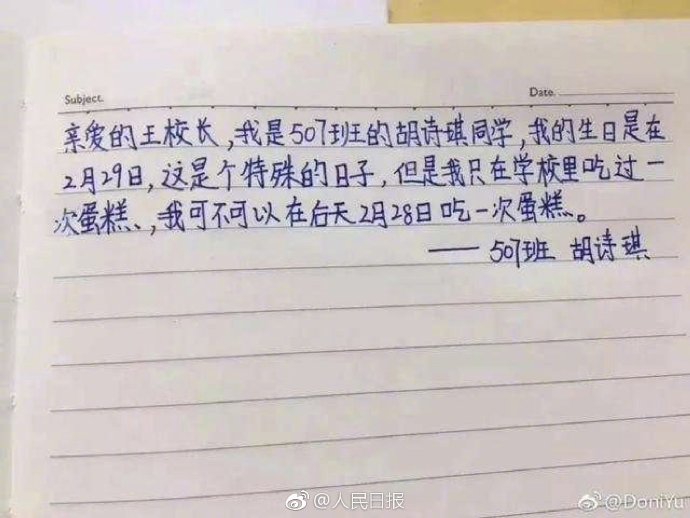 Subject.
Date.
亲爱的王校长，我是507班的胡诗琪同学，我的生日是在
2月29日，这是个特殊的日子，但是我只在学校里吃过一
次蛋糕、，我可不可以在后天2月28日吃一次蛋糕。
—— 507班 胡诗琪
@人民日报
@DoniYu